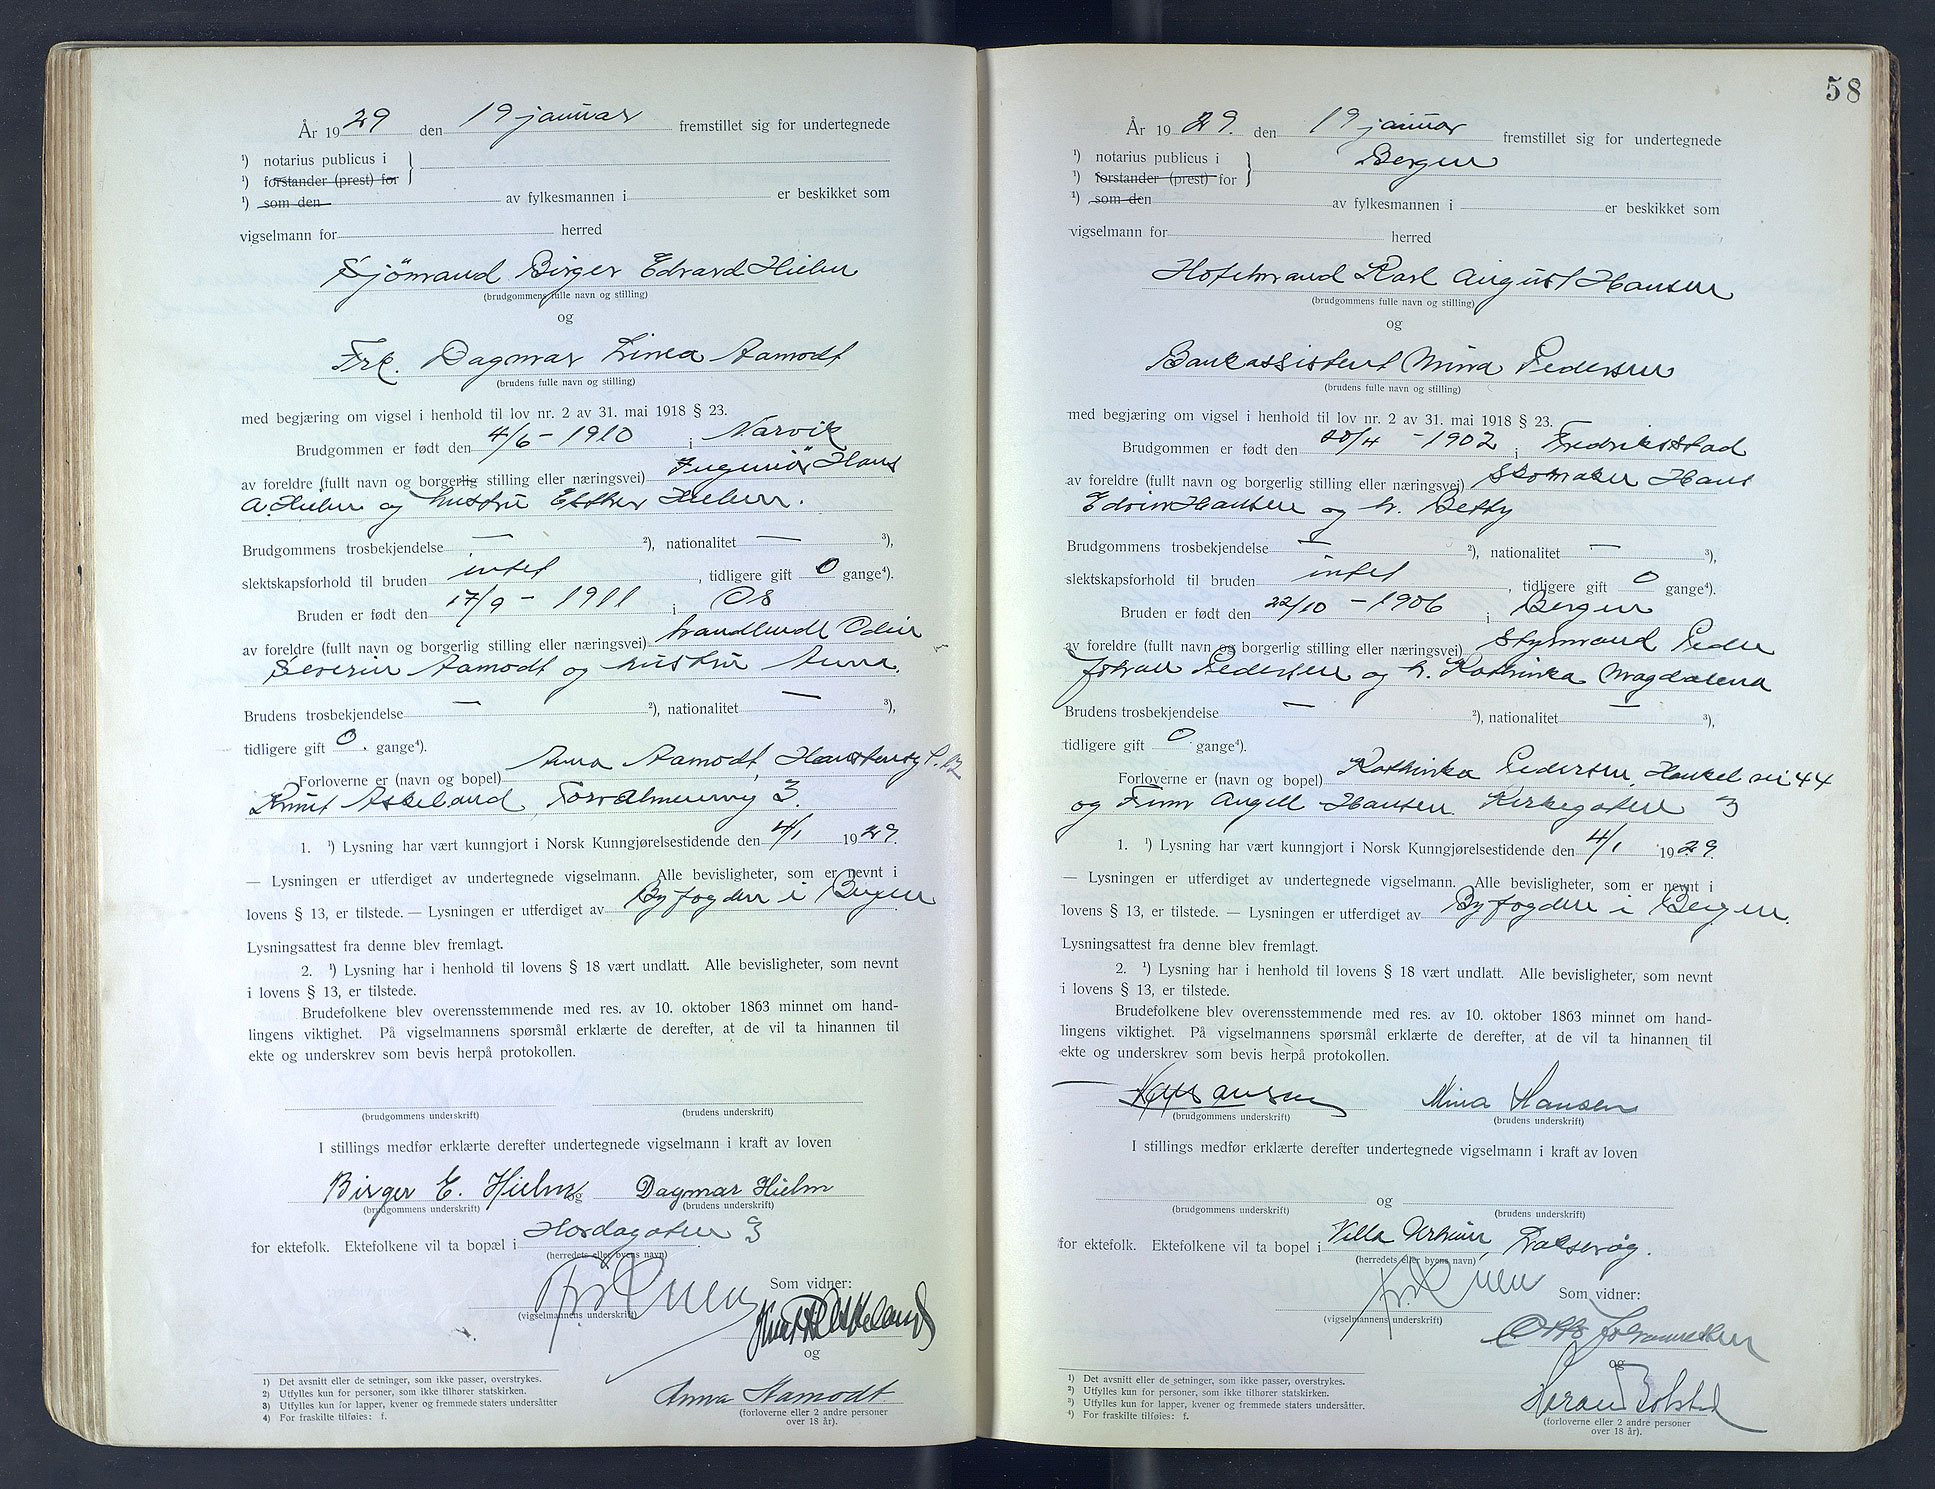 År 1929 den 19 januar fremstillet sig for undertegnede
¹) notarius publicus i
¹) forstander (prest) for
¹) som den av fylkesmannen i er beskikket som
vigselmann for herred
Sjömand Birger Edvard Hielm
(brudgommens fulle navn og stilling)
og
Frk. Dagmar Linea Aamodt
(brudens fulle navn og stilling)
med begjæring om vigsel i henhold til lov nr. 2 av 31. mai 1918 § 23.
Brudgommen er født den 4/6 - 1910 i Narvik
av foreldre (fullt navn og borgerlig stilling eller næringsvei) Ingeniör Hans
A. Hielm og hustru Esther Hielm.
Brudgommens trosbekjendelse — ²), nationalitet — ³),
slektskapsforhold til bruden intet, tidligere gift 0 gange⁴).
Bruden er født den 17/9 - 1911 i Os
av foreldre (fullt navn og borgerlig stilling eller næringsvei) Odin
Severin Aamodt og hustru Anna.
Brudens trosbekjendelse — ²), nationalitet — ³),
tidligere gift 0. gange⁴).
Forloverne er (navn og bopel) Anna Aamodt,
Knut Askeland, 3.
1. ¹) Lysning har vært kunngjort i Norsk Kunngjørelsestidende den 4/1 1929.
— Lysningen er utferdiget av undertegnede vigselmann. Alle bevisligheter, som er nevnt i
lovens § 13, er tilstede. — Lysningen er utferdiget av Byfogden i Bergen
Lysningsattest fra denne blev fremlagt.
2. ¹) Lysning har i henhold til lovens § 18 vært undlatt. Alle bevisligheter, som nevnt
i lovens § 13, er tilstede.
Brudefolkene blev overensstemmende med res. av 10. oktober 1863 minnet om hand-
lingens viktighet. På vigselmannens spørsmål erklærte de derefter, at de vil ta hinannen til
ekte og underskrev som bevis herpå protokollen.
(brudgommens underskrift) (brudens underskrift)
I stillings medfør erklærte derefter undertegnede vigselmann i kraft av loven
Birger E. Hielm og Dagmar Hielm
(brudgommens underskrift) (brudens underskrift)
for ektefolk. Ektefolkene vil ta bopæl i Hordagaten 3
(herredets eller byens navn)
Som vidner:
(vigselmannens underskrift)
Knut Askeland
og
Anna Aamodt
(forloverne eller 2 andre personer
over 18 år).
1) Det avsnitt eller de setninger, som ikke passer, overstrykes.
2) Utfylles kun for personer, som ikke tilhører statskirken.
3) Utfylles kun for lapper, kvener og fremmede staters undersåtter
4) For fraskilte tilføies: f.
58
År 1929. den 19 januar fremstillet sig for undertegnede
¹) notarius publicus i Bergen
¹) forstander (prest) for
¹) som den av fylkesmannen i er beskikket som
vigselmann for herred
Karl August Hansen
(brudgommens fulle navn og stilling)
og
Bankassistent Mina Pedersen
(brudens fulle navn og stilling)
med begjæring om vigsel i henhold til lov nr. 2 av 31. mai 1918 § 23.
Brudgommen er født den /4 - 1902 i Fredriksstad
av foreldre (fullt navn og borgerlig stilling eller næringsvei) Skomaker Hans
Edvin Hansen og h. Betty
Brudgommens trosbekjendelse — ²), nationalitet — ³),
slektskapsforhold til bruden intet, tidligere gift 0 gange⁴).
Bruden er født den 22/10 - 1906 i Bergen
av foreldre (fullt navn og borgerlig stilling eller næringsvei) Styrmand Peder
Johan Pedersen og h. Kathinka Magdalena
Brudens trosbekjendelse — ²), nationalitet — ³),
tidligere gift 0 gange⁴).
Forloverne er (navn og bopel) Kathinka Pedersen, 44
og Finn Angell Hansen. Kirkegaten 3
1. ¹) Lysning har vært kunngjort i Norsk Kunngjørelsestidende den 4/1 1929.
— Lysningen er utferdiget av undertegnede vigselmann. Alle bevisligheter, som er nevnt i
lovens § 13, er tilstede. — Lysningen er utferdiget av Byfogden i Bergen.
Lysningsattest fra denne blev fremlagt.
2. ¹) Lysning har i henhold til lovens § 18 vært undlatt. Alle bevisligheter, som nevnt
i lovens § 13, er tilstede.
Brudefolkene blev overensstemmende med res. av 10. oktober 1863 minnet om hand-
lingens viktighet. På vigselmannens spørsmål erklærte de derefter, at de vil ta hinannen til
ekte og underskrev som bevis herpå protokollen.
Hansen Mina Hansen
(brudgommens underskrift) (brudens underskrift)
I stillings medfør erklærte derefter undertegnede vigselmann i kraft av loven
og
(brudgommens underskrift) (brudens underskrift)
for ektefolk. Ektefolkene vil ta bopel i Villa Laksevåg.
(herredets eller byens navn)
Som vidner:
(vigselmannens underskrift)
Otto Johannessen
og
Bolstad
(forloverne eller 2 andre personer
over 18 år).
¹) Det avsnitt eller de setninger, som ikke passer, overstrykes.
²) Utfylles kun for personer, som ikke tilhører statskirken.
³) Utfylles kun for lapper, kvener og fremmede staters undersåtter.
⁴) For fraskilte tilføies: f.